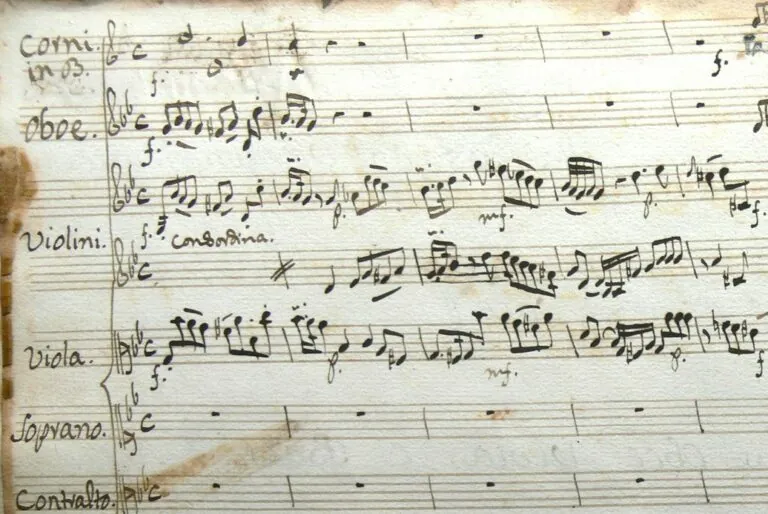 Corni.
in B.
f.
f.
Oboe.
f.
Violini.
f.
p.
mf.
p.
f.
Con Sordina.
Viola.
f.
p.
mf.
p.
f
Soprano.
Contralto.